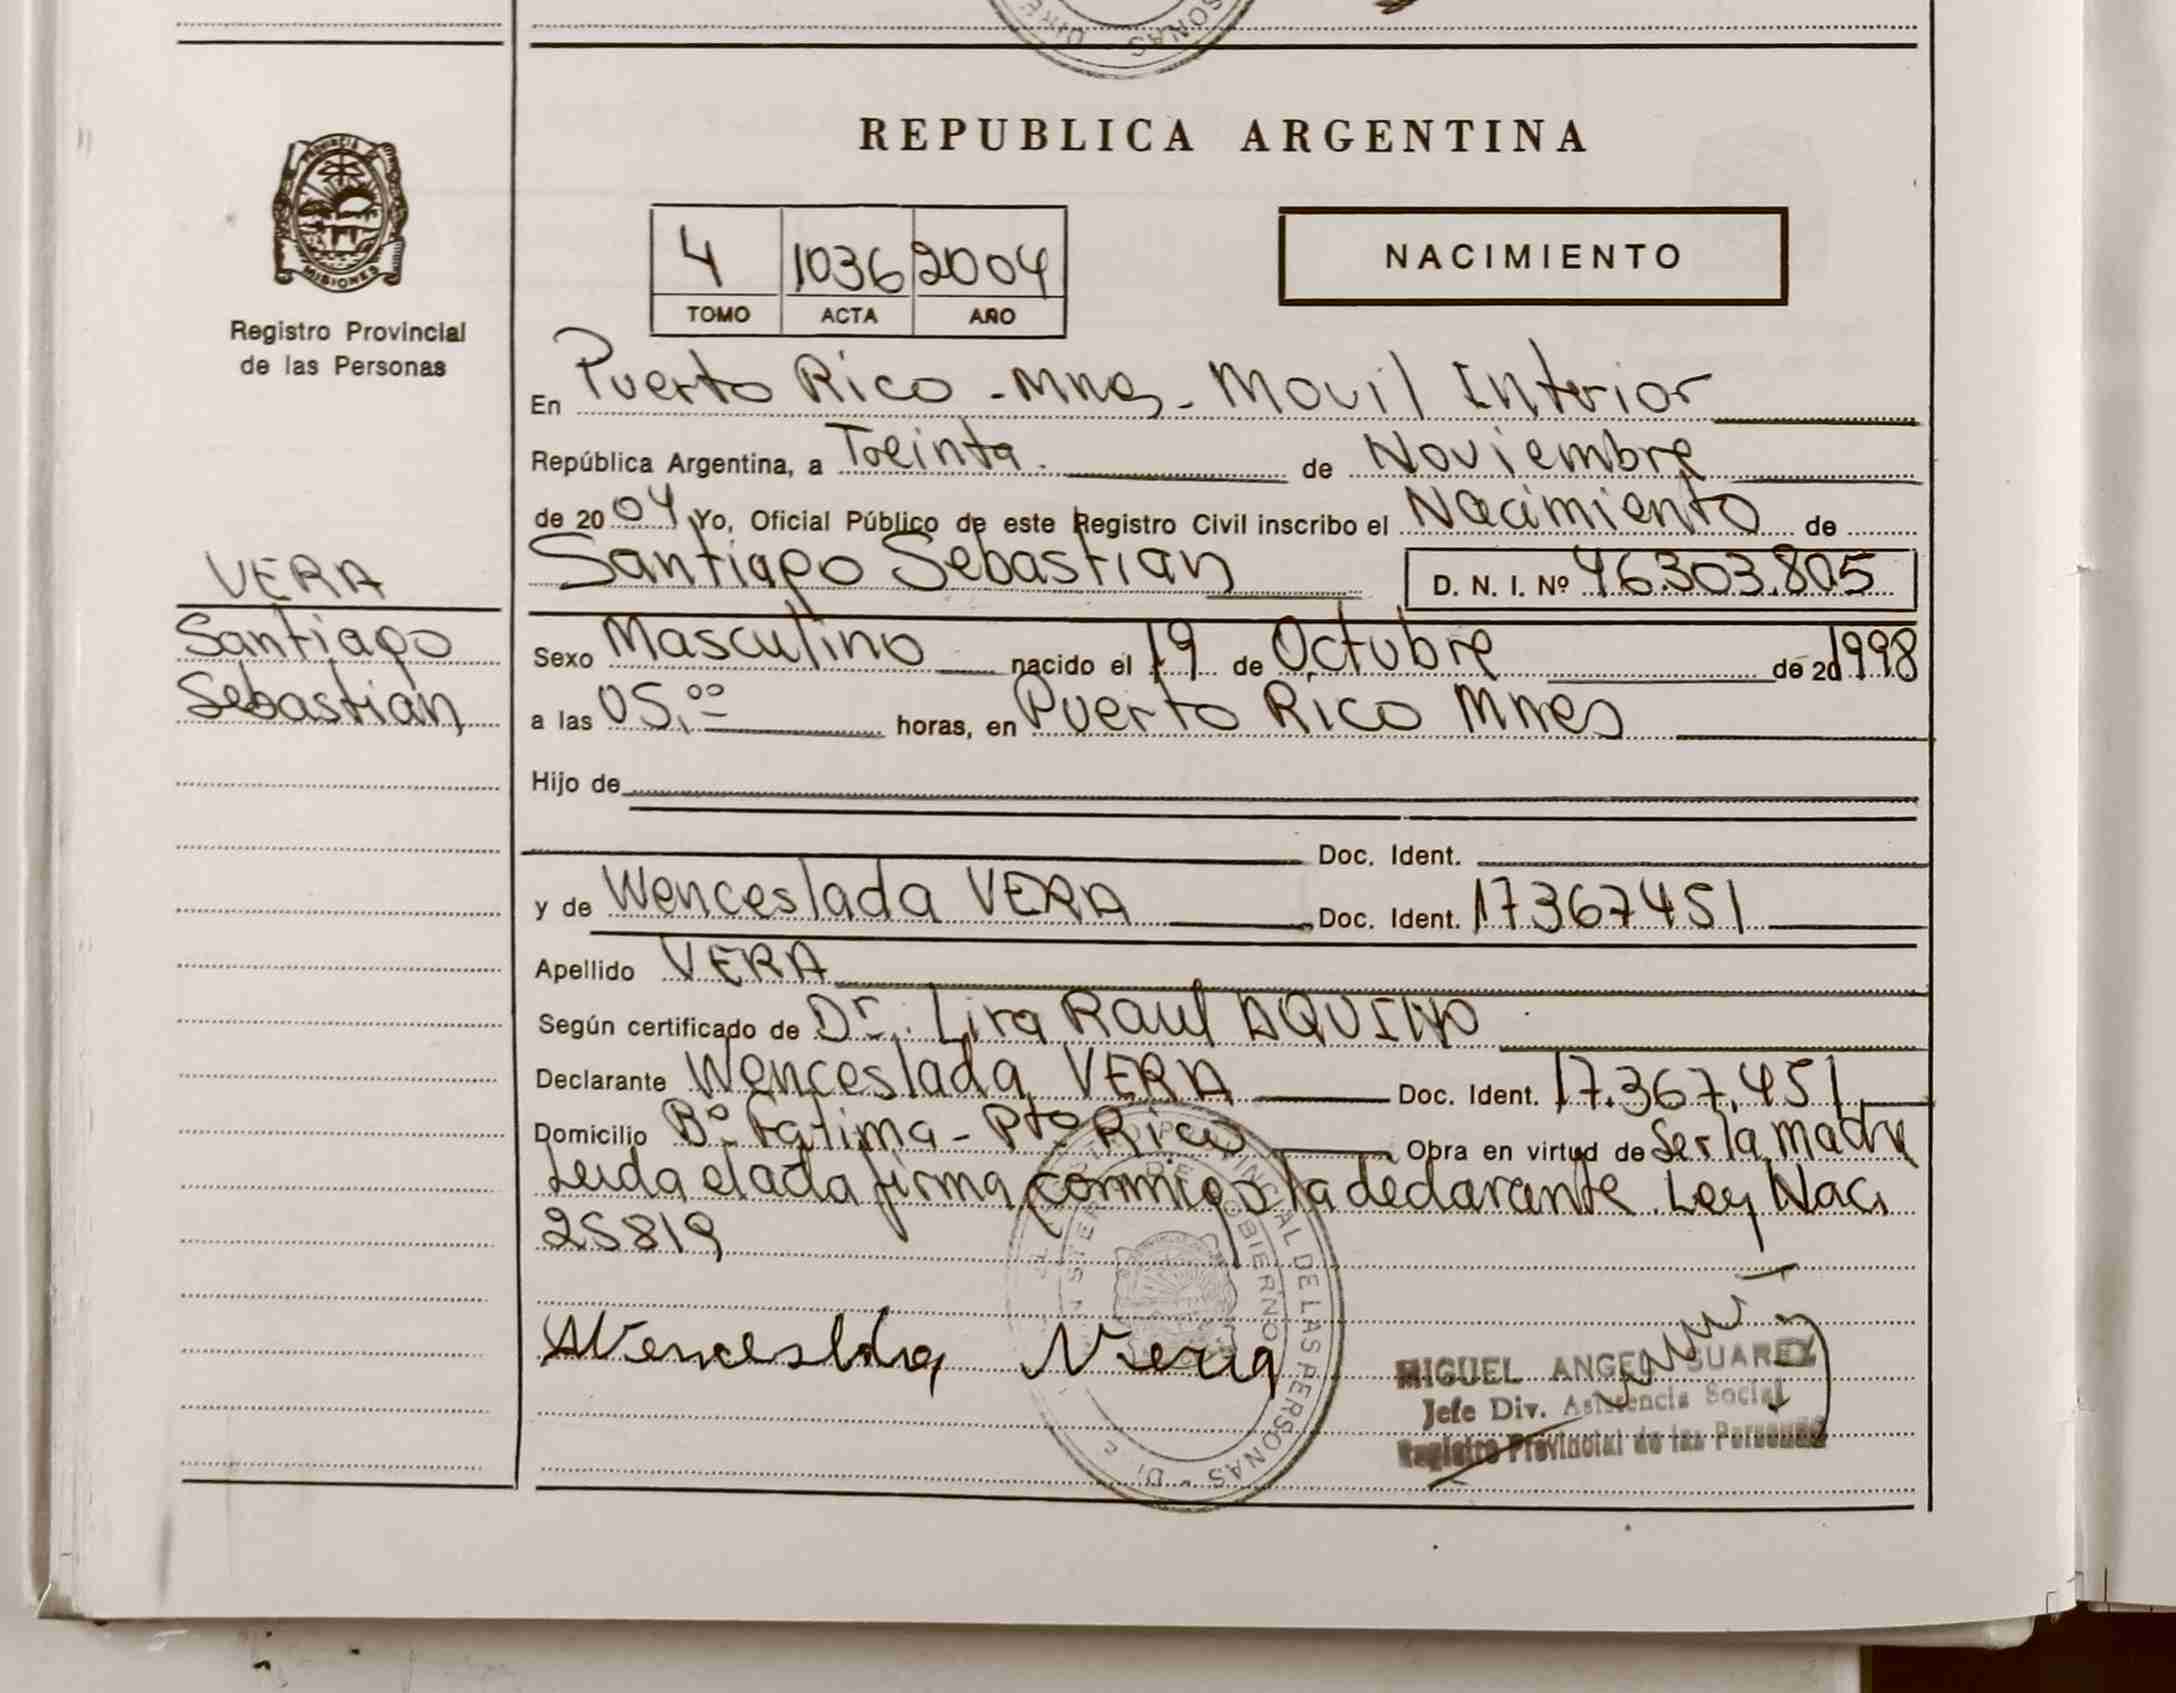 REPUBLICA ARGENTINA
PROVINCIA DE
MISIONES
Registro Provincial
de las Personas
4 1036 2004
TOMO ACTA AÑO
NACIMIENTO
En Puerto Rico - Mnes - Movil Interior
República Argentina, a Treinta. de Noviembre
de 2004 Yo, Oficial Público de este Registro Civil inscribo el Nacimiento de
Santiago Sebastian D. N. I. Nº 46.303.805
VERA
Santiago
Sebastian
Sexo Masculino nacido el 19 de Octubre de 20 1998
a las 05.00 horas, en Puerto Rico Mnes
Hijo de
Doc. Ident.
y de Wenceslada VERA Doc. Ident. 17367451
Apellido VERA
Según certificado de Dr. Lira Raul AQUINO
Declarante Wenceslada VERA Doc. Ident. 17.367.451
Domicilio Bº Fatima - Pto Rico Obra en virtud de Ser la madre
Leida el acta firma conmigo la declarante. Ley Nac.
25819
Wenceslda Vera
MIGUEL ANGEL SUAREZ
Jefe Div. Asistencia Social
Registro Provincial de las Personas